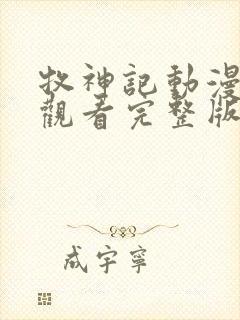 牧神記動漫
觀看完整版
成宇寧